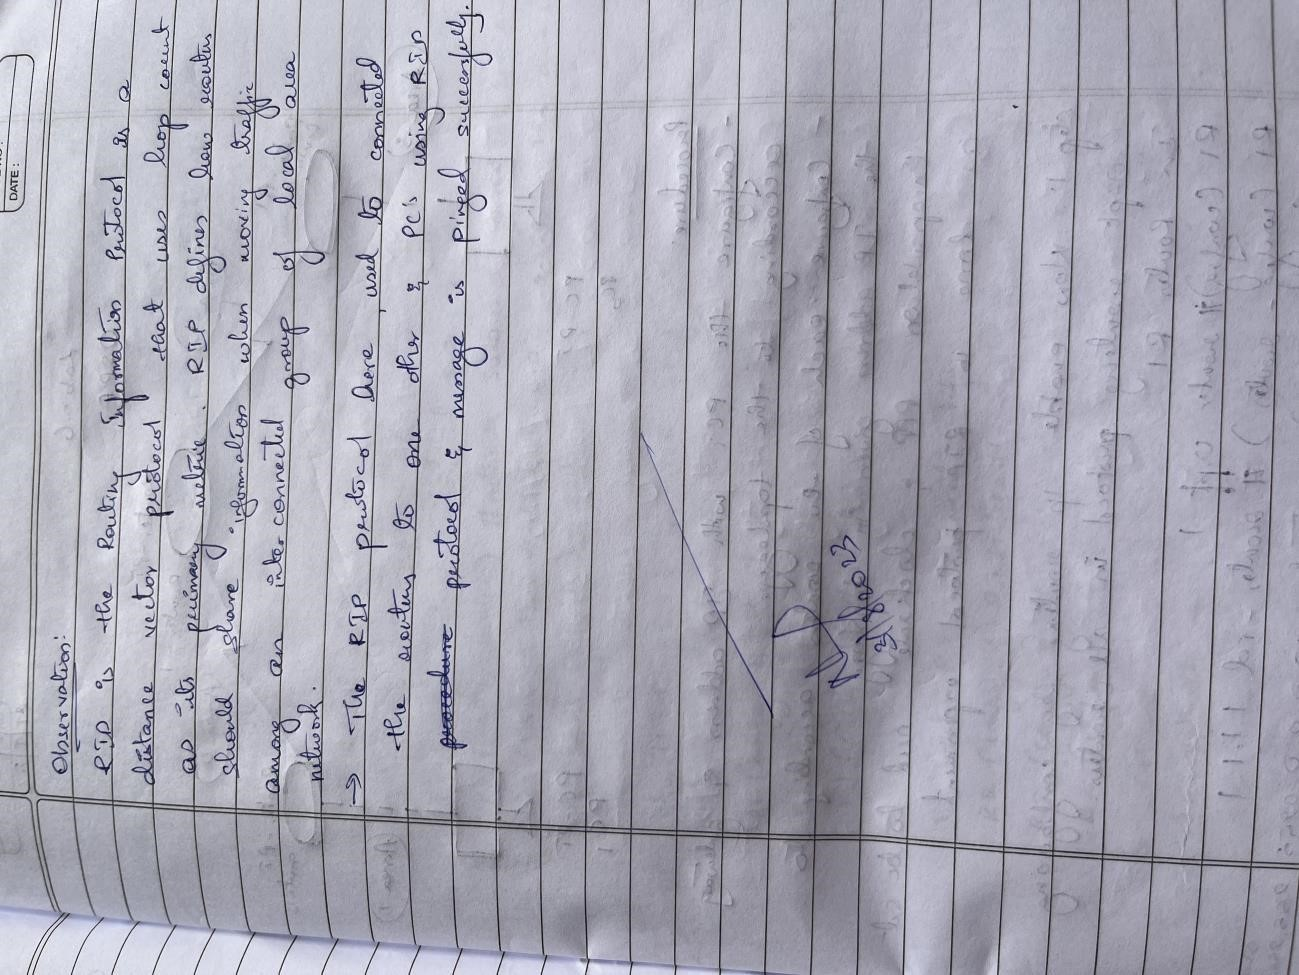 DATE:
Observation:
RIP is the Routing Information Protocol is a
distance vector protocol that uses hop count
as its primary metric. RIP defines how routers
should share information when moving traffic
among an interconnected group of local area
network.
→ The RIP protocol here, used to connected
the routers to one other & PC's using RIP
procedure protocol & message is pinged successfully.